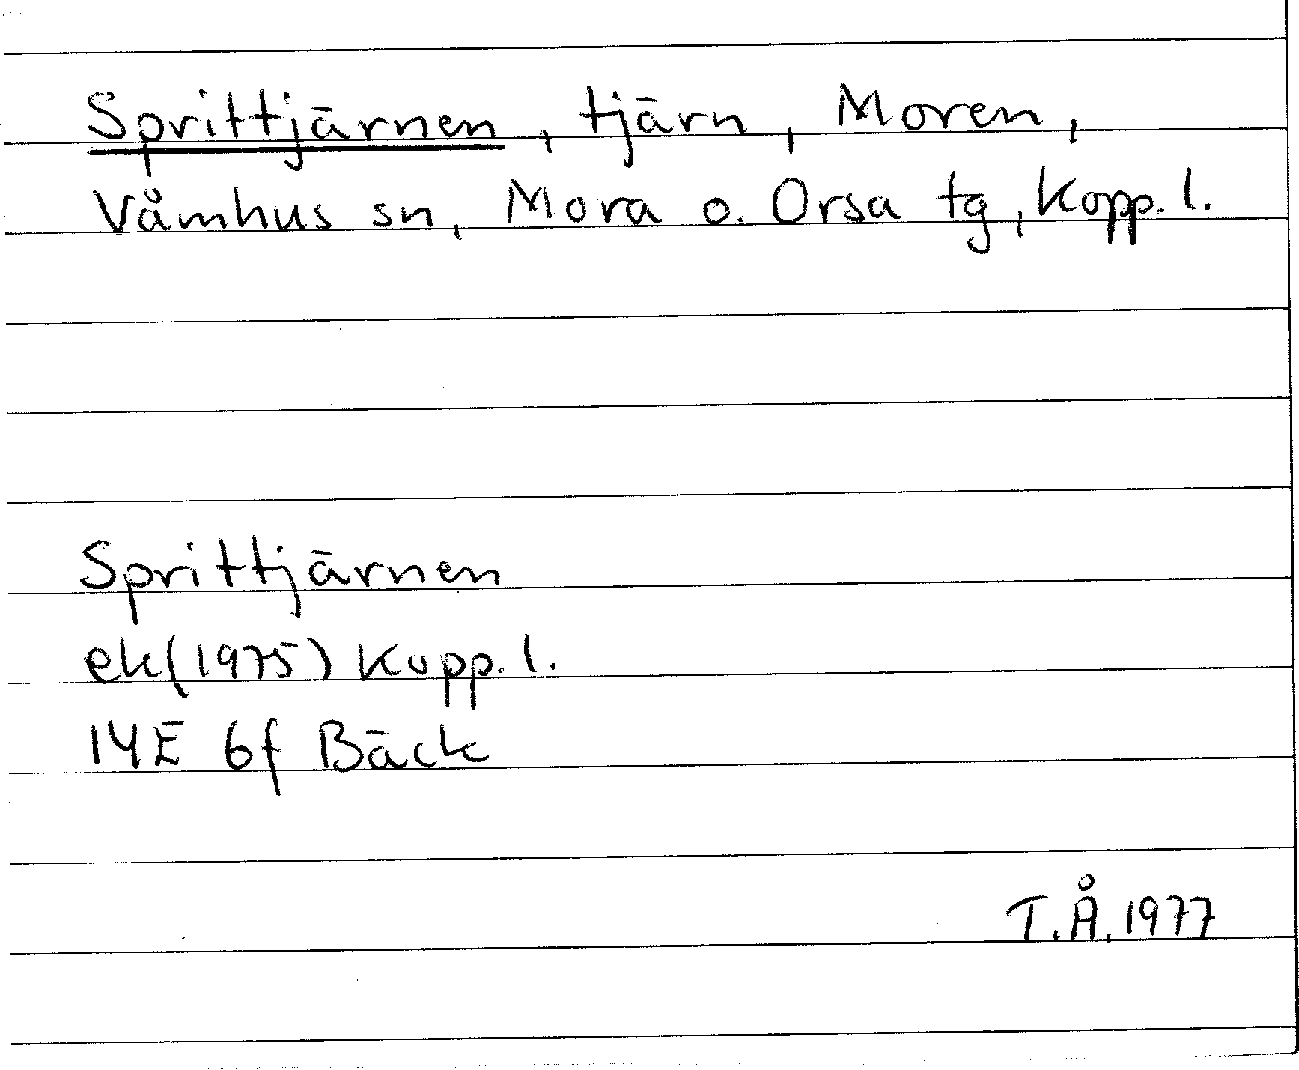 Sprittjärnen, tjärn, Moren,
Våmhus sn, Mora o. Orsa tg, Kopp. l.
Sprittjärnen
ek (1975) Kopp. l.
14E 6f Bäck
T.Å. 1977